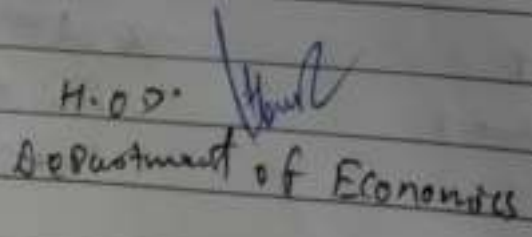 H.O.D.
Department of Economics